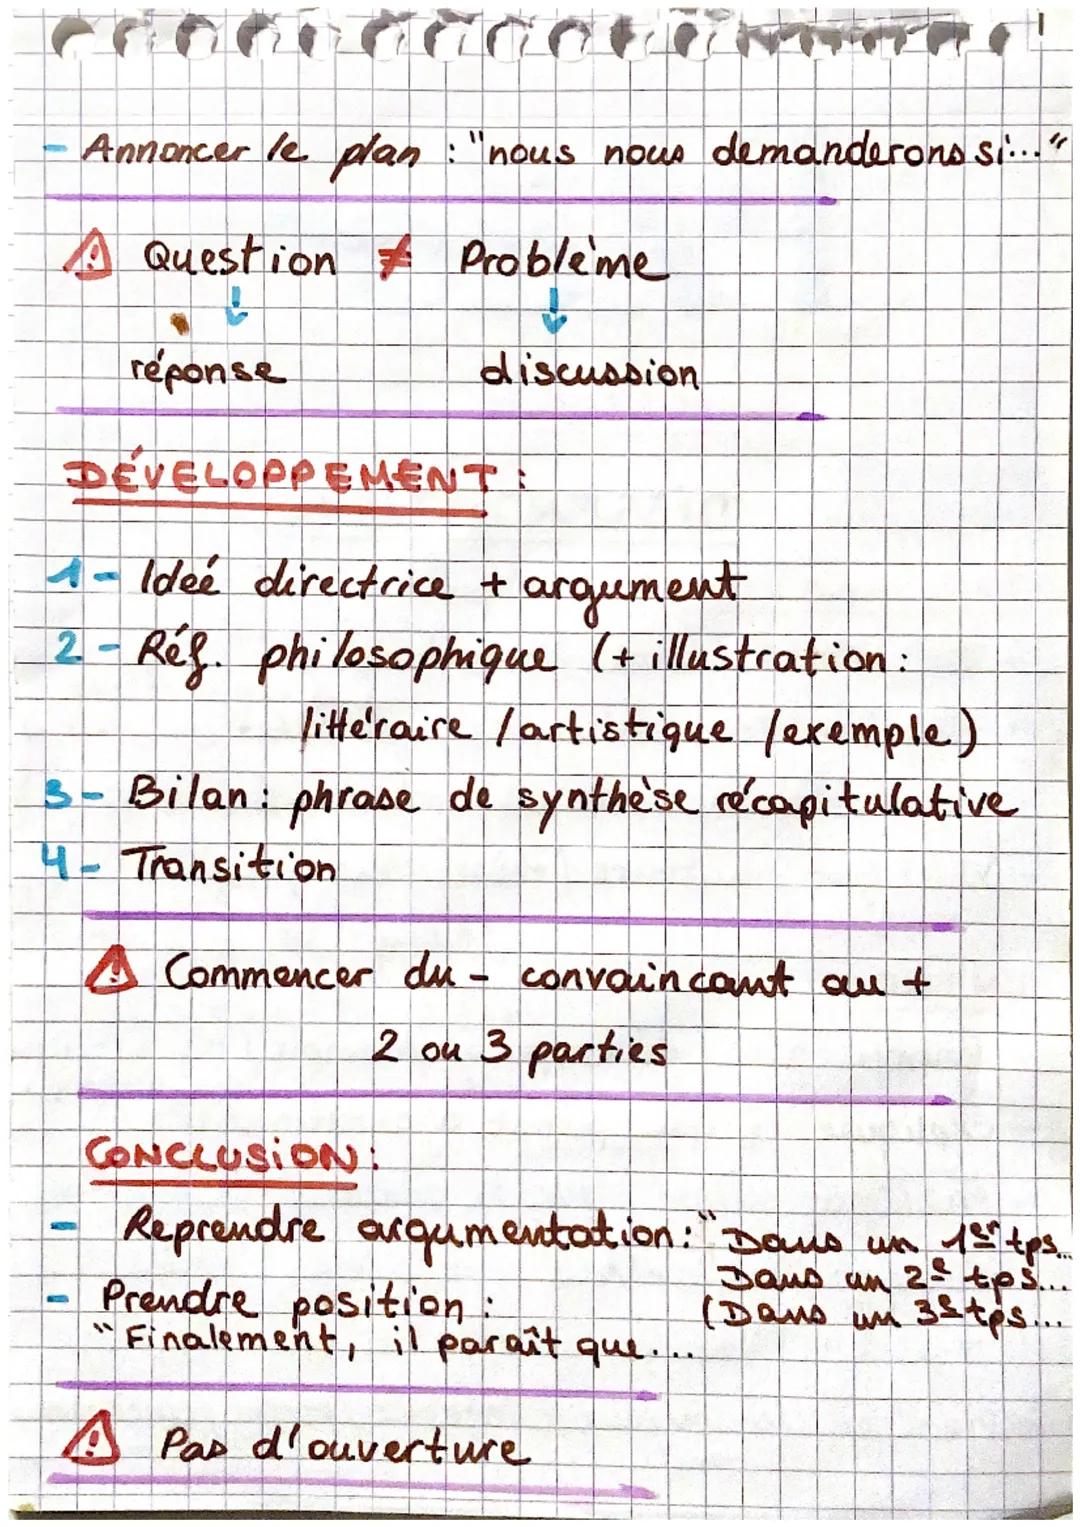 - Annoncer le plan : "nous nous demanderons si..."
⚠ Question ≠ Problème
↓ ↓
réponse discussion
DÉVELOPPEMENT :
1- Ideé directrice + argument
2- Réf. philosophique (+ illustration :
littéraire / artistique / exemple)
3- Bilan : phrase de synthèse récapitulative
4- Transition
⚠ Commencer du - convaincant au +
2 ou 3 parties
CONCLUSION :
- Reprendre argumentation : "Dans un 1er tps...
Dans un 2e tps...
- Prendre position : (Dans un 3e tps...
"Finalement, il paraît que...
⚠ Pas d'ouverture